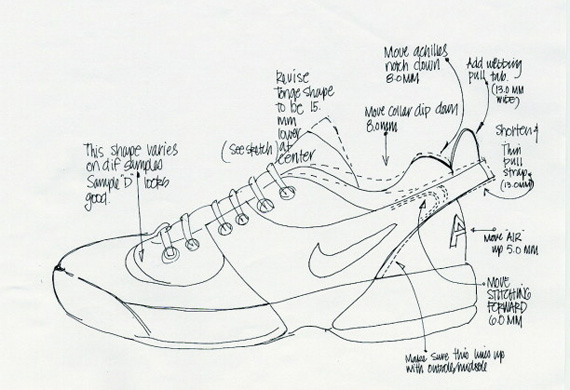 Revise
Tonge shape
to be 15.
mm
lower
at
center
(See sketch)
Move achilles
notch down
8.0MM
Add webbing
pull tab.
(13.0 MM
WIDE)
Move collar dip down
8.0mm
Shorten &
Thin
pull
strap
(13.0mm)
This shape varies
on dif samples
Sample "D" looks
good.
A
Move "AIR"
up 5.0 MM
MOVE
STITCHING
FORWARD
6.0 MM
Make Sure this lines up
with outsole/midsole